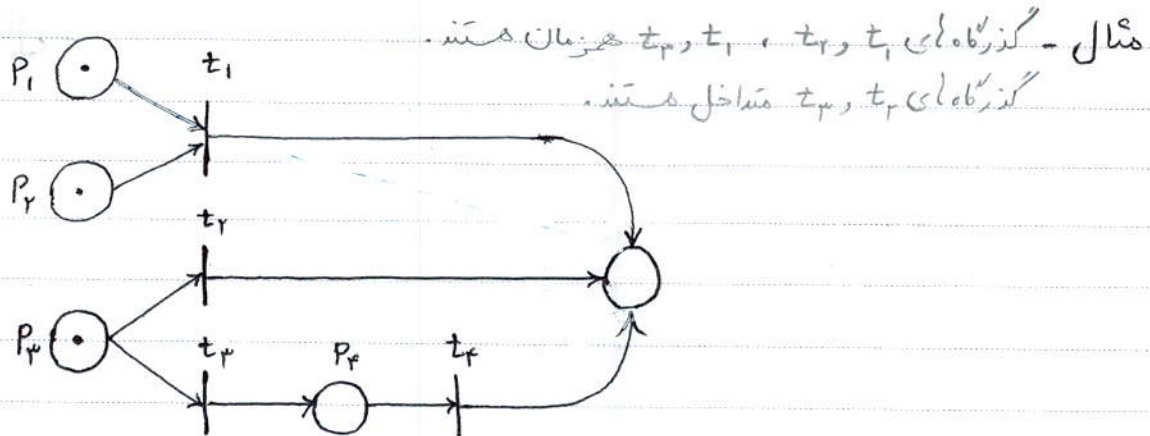 مثال - گذرگاه‌های t₁ و t₂ ، t₁ و t₃ همزمان هستند.
گذرگاه‌های t₂ و t₃ متداخل هستند.
P₁
t₁
P₂
t₂
P₃
t₃
P₄
t₄